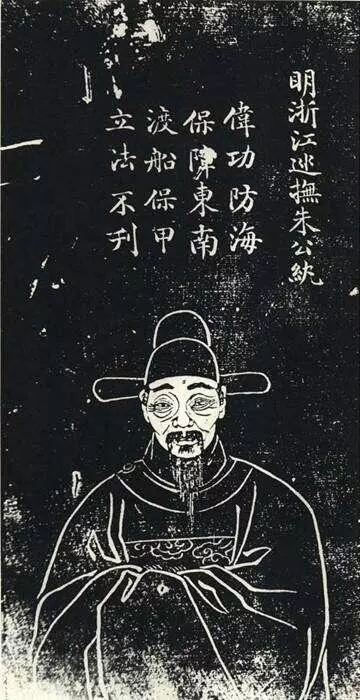 明浙江巡撫朱公紈
偉功防海
保障東南
渡船保甲
立法不刋